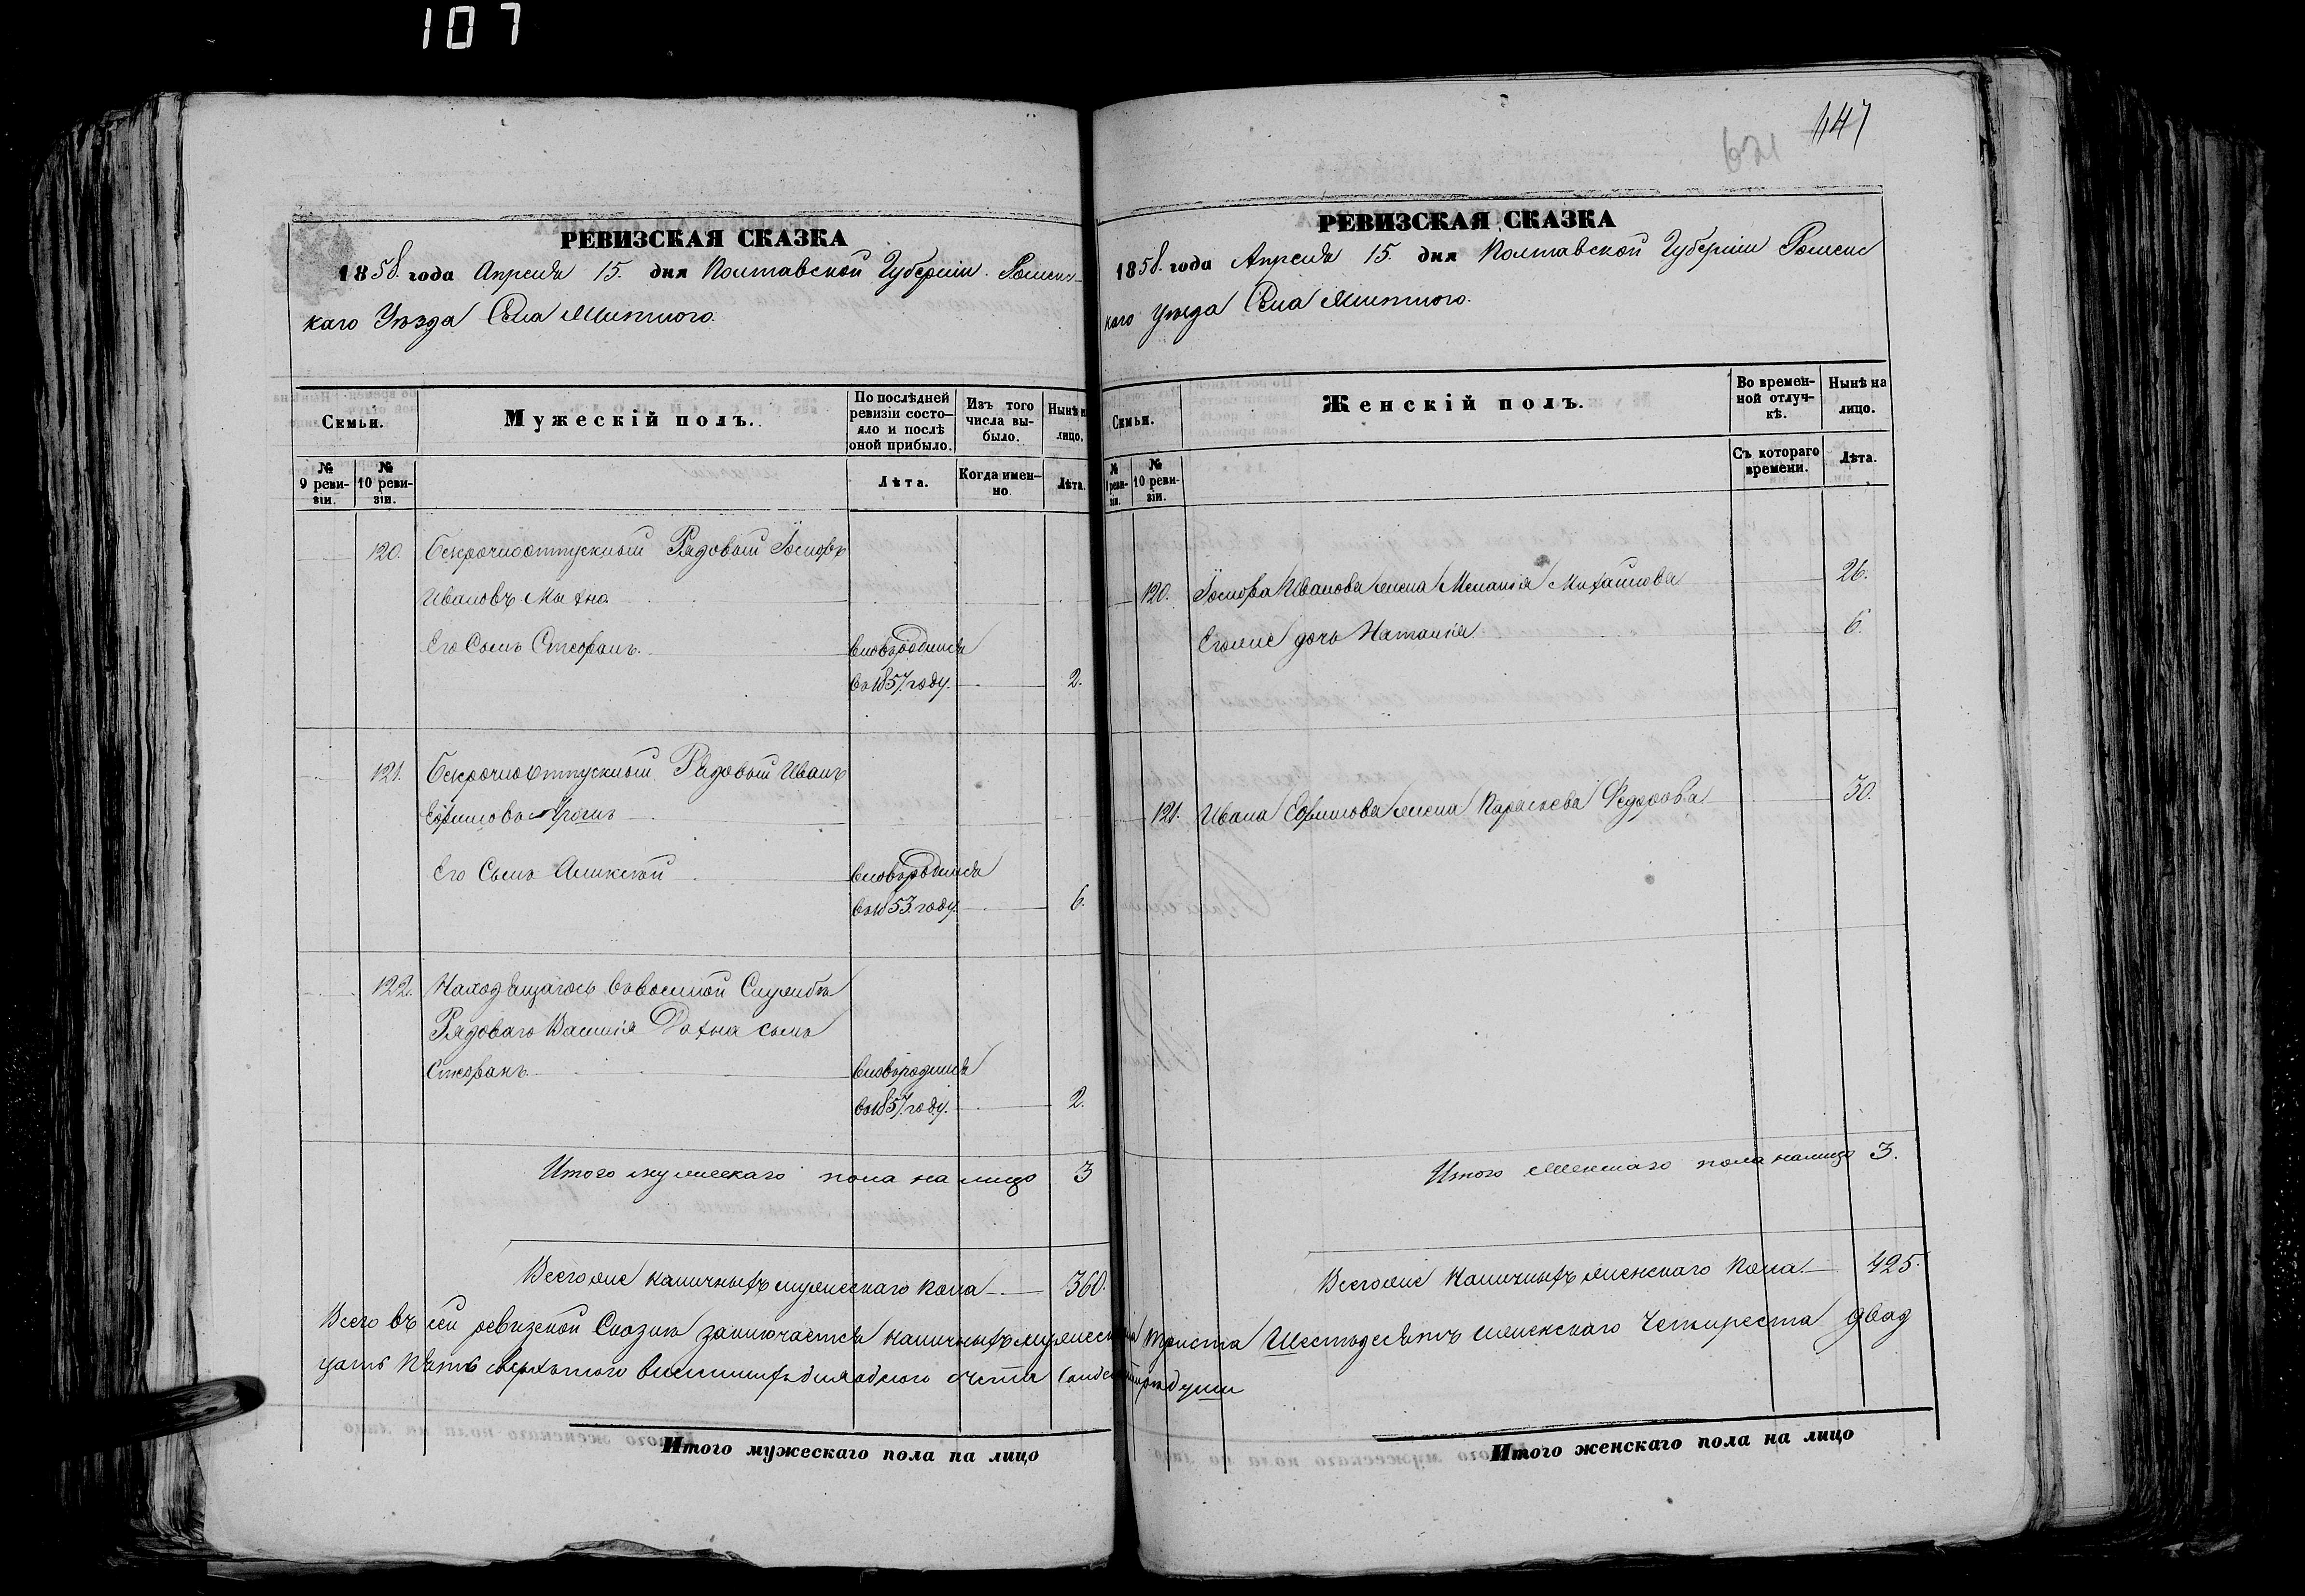 107
РЕВИЗСКАЯ СКАЗКА
1858. года Апреля 15. дня Полтавской Губерніи Роменс-
каго Уѣзда Села
Семьи.
Мужескій полъ.
По послѣдней ревизіи состо-яло и послѣ оной прибыло.
Изъ того числа вы-было.
Нынѣ н лицо.
№ 9 реви-зіи.
№ 10 реви-зіи.
Лѣта.
Когда имен-но
Лѣта.
120. Безсрочноотпускный Рядовый Іосифъ
Ивановъ Махно
Его Сынъ Стефанъ вновьродился
въ 1857. году. 2.
121. Безсрочноотпускный Рядовый Иванъ
Ефимовъ
Его Сынъ Алексѣй вновьродился
въ 1853. году 6.
122. Находящагось въ военной Службѣ
Рядоваго Василія сынъ
Стефанъ вновьродился
въ 1857. году. 2.
Итого мужескаго пола на лицо 3
Всегоже наличныхъ мужескаго пола 360.
147
621
РЕВИЗСКАЯ СКАЗКА
1858. года Апреля 15. дня Полтавской Губерніи Роменс
каго Уѣзда Села
Семьи.
Женскій полъ.
Во времен-ной отлуч-кѣ.
Нынѣ на лицо.
№ реви-зіи.
№ 10 реви-зіи.
Съ котораго времени.
Лѣта.
120. Іосифа Иванова жена Меланія Михайлова 26.
Егоже дочь Наталія 6.
121. Ивана Ефимова жена Параскева Федорова 30.
Итого женскаго пола налицо 3.
Всегоже Наличныхъ женскаго пола 425.
Всего въ сей ревизской Сказкѣ заключается наличныхъ мужеска триста Шестьдесятъ женскаго Четыреста двад
цать пять сверхъ того для одного счета душъ
Итого мужескаго пола на лицо
Итого женскаго пола на лицо